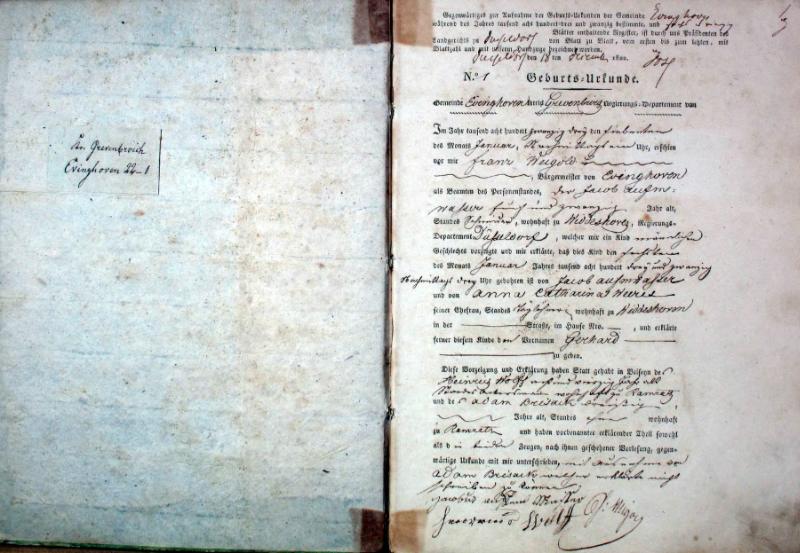 Kr. Grevenbroich
Evinghoven 22-1
Gegenwärtiges zur Aufnahme der Geburts-Urkunden der Gemeinde Evinghoven
während des Jahres tausend acht hundert drei und zwanzig bestimmte, und
Blätter enthaltende Register, ist durch uns Präsidenten des
Landgerichts zu Düsseldorf von Blatt zu Blatt, vom ersten bis zum letzten, mit
Blattzahl und mit unserm Handzuge bezeichnet worden.
Düsseldorf den 18 ten 1822.
No. 1 Geburts-Urkunde.
Gemeinde Evenghoven Kreis Grevenbroich Regierungs-Departement von
Im Jahr tausend acht hundert zwanzig drey den siebenten
des Monats Januar, Nachmittags Uhr, erschien
vor mir Franz Weigold
, Bürgermeister von Evenghoven
als Beamten des Personenstandes, der Jacob aufm-
wasser fünf und zwanzig Jahr alt,
Standes , wohnhaft zu Widdeshoven, Regierungs-
Departement Düsseldorf, welcher mir ein Kind männlichen
Geschlechts vorzeigte und mir erklärte, daß dies Kind den
des Monats Januar Jahres tausend acht hundert drey und zwanzig
Nachmittags drey Uhr gebohren ist von Jacob aufmwasser
und von anna Catharina Weeres
seiner Ehefrau, Standes wohnhaft zu Widdeshoven
in der Straße, im Hause Nro. , und erklärte
ferner diesem Kinde den Vornamen Gerhard
zu geben.
Diese Vorzeigung und Erklärung haben Statt gehabt in Beiseyn des
Heinrich Wolff
wohnhaft zu Ramrath
und des adam Breisack dreißig
Jahr alt, Standes wohnhaft
zu Ramrath und haben vorbenannter erklärender Theil sowohl
als die beiden Zeugen, nach ihnen geschehener Vorlesung, gegen-
wärtige Urkunde mit mir unterschrieben, mit ausnahme von
adam Breisack welcher erklärte nicht
schreiben zu können
Jacobus auf dem Wasser
Wolff